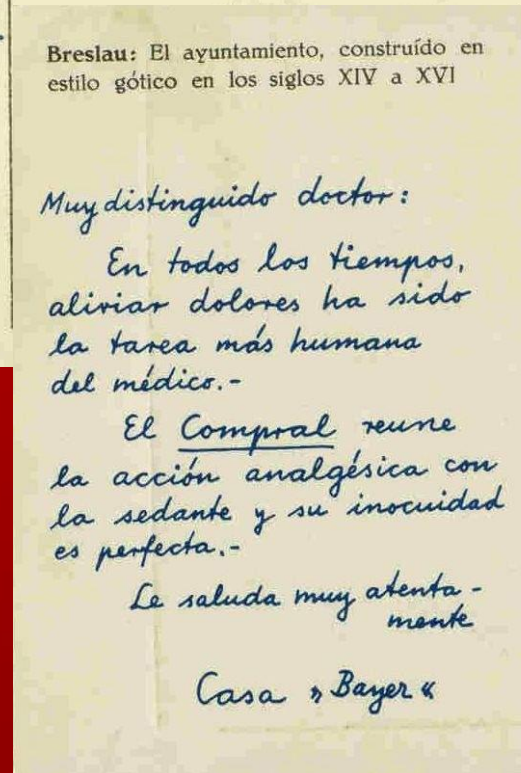 Breslau: El ayuntamiento, construído en
estilo gótico en los siglos XIV a XVI
Muy distinguido doctor:
En todos los tiempos,
aliviar dolores ha sido
la tarea más humana
del médico.-
El Compral reune
la acción analgésica con
la sedante y su inocuidad
es perfecta.-
Le saluda muy atenta-
mente
Casa »Bayer«